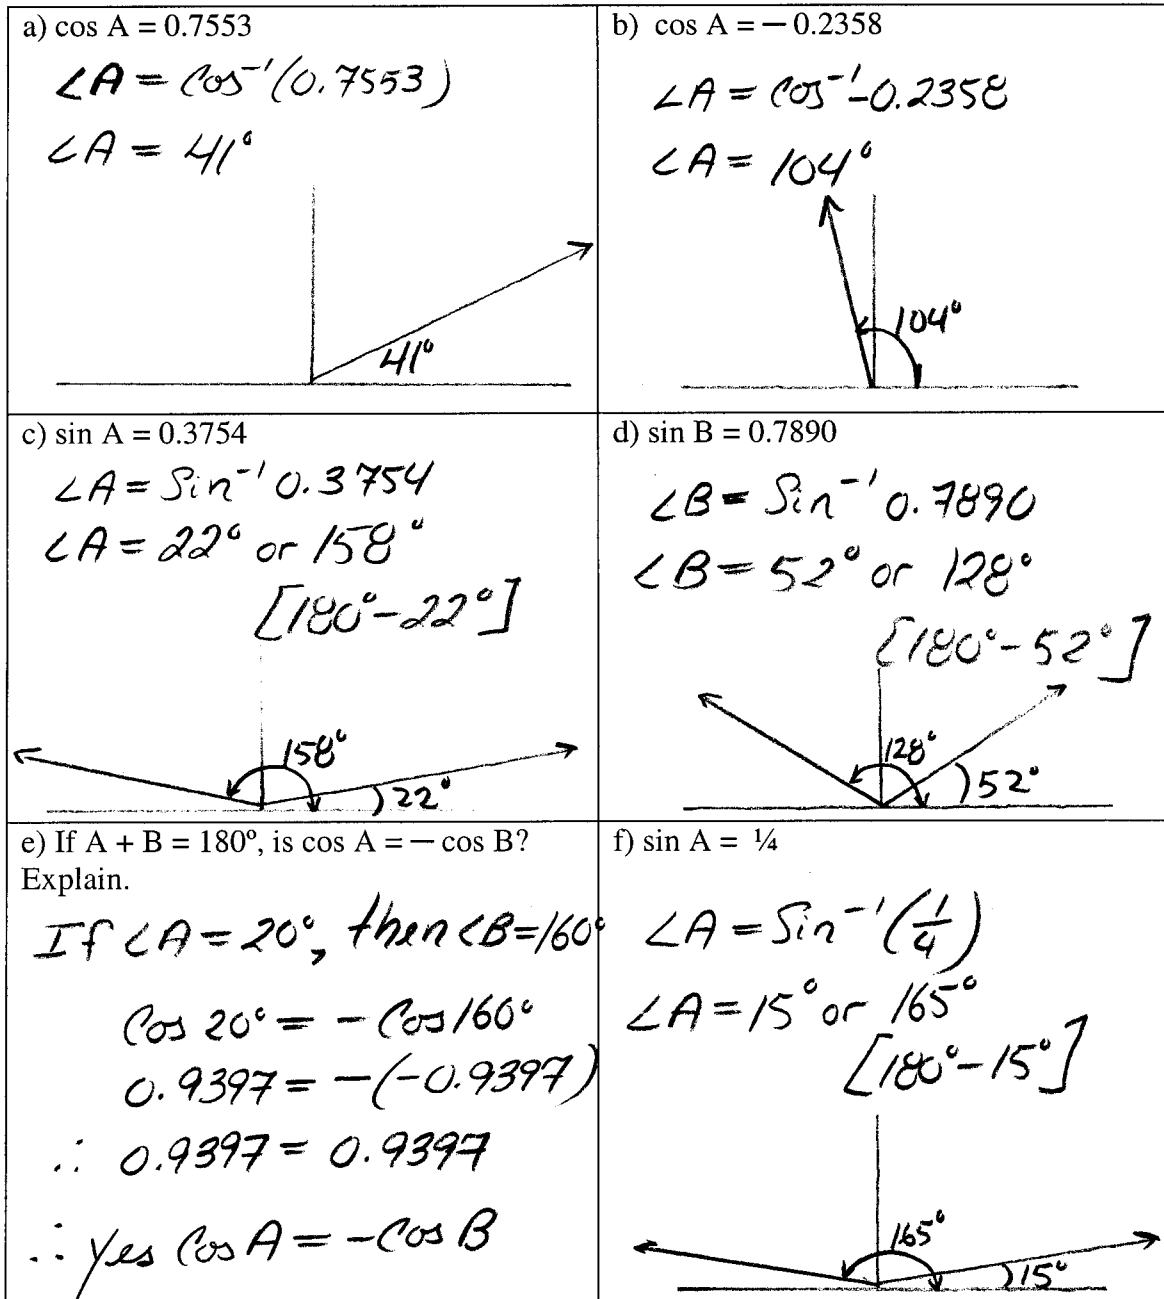 a) cos A = 0.7553
∠A = Cos⁻¹(0.7553)
∠A = 41°
41°
b) cos A = − 0.2358
∠A = Cos⁻¹-0.2358
∠A = 104°
104°
c) sin A = 0.3754
∠A = Sin⁻¹ 0.3754
∠A = 22° or 158°
[180°-22°]
158°
22°
d) sin B = 0.7890
∠B = Sin⁻¹ 0.7890
∠B = 52° or 128°
[180°-52°]
128°
52°
e) If A + B = 180º, is cos A = − cos B?
Explain.
If ∠A = 20°, then ∠B=160°
Cos 20° = - Cos 160°
0.9397 = -(-0.9397)
∴ 0.9397 = 0.9397
∴ yes Cos A = -Cos B
f) sin A = ¼
∠A = Sin⁻¹(1/4)
∠A = 15° or 165°
[180°-15°]
165°
15°